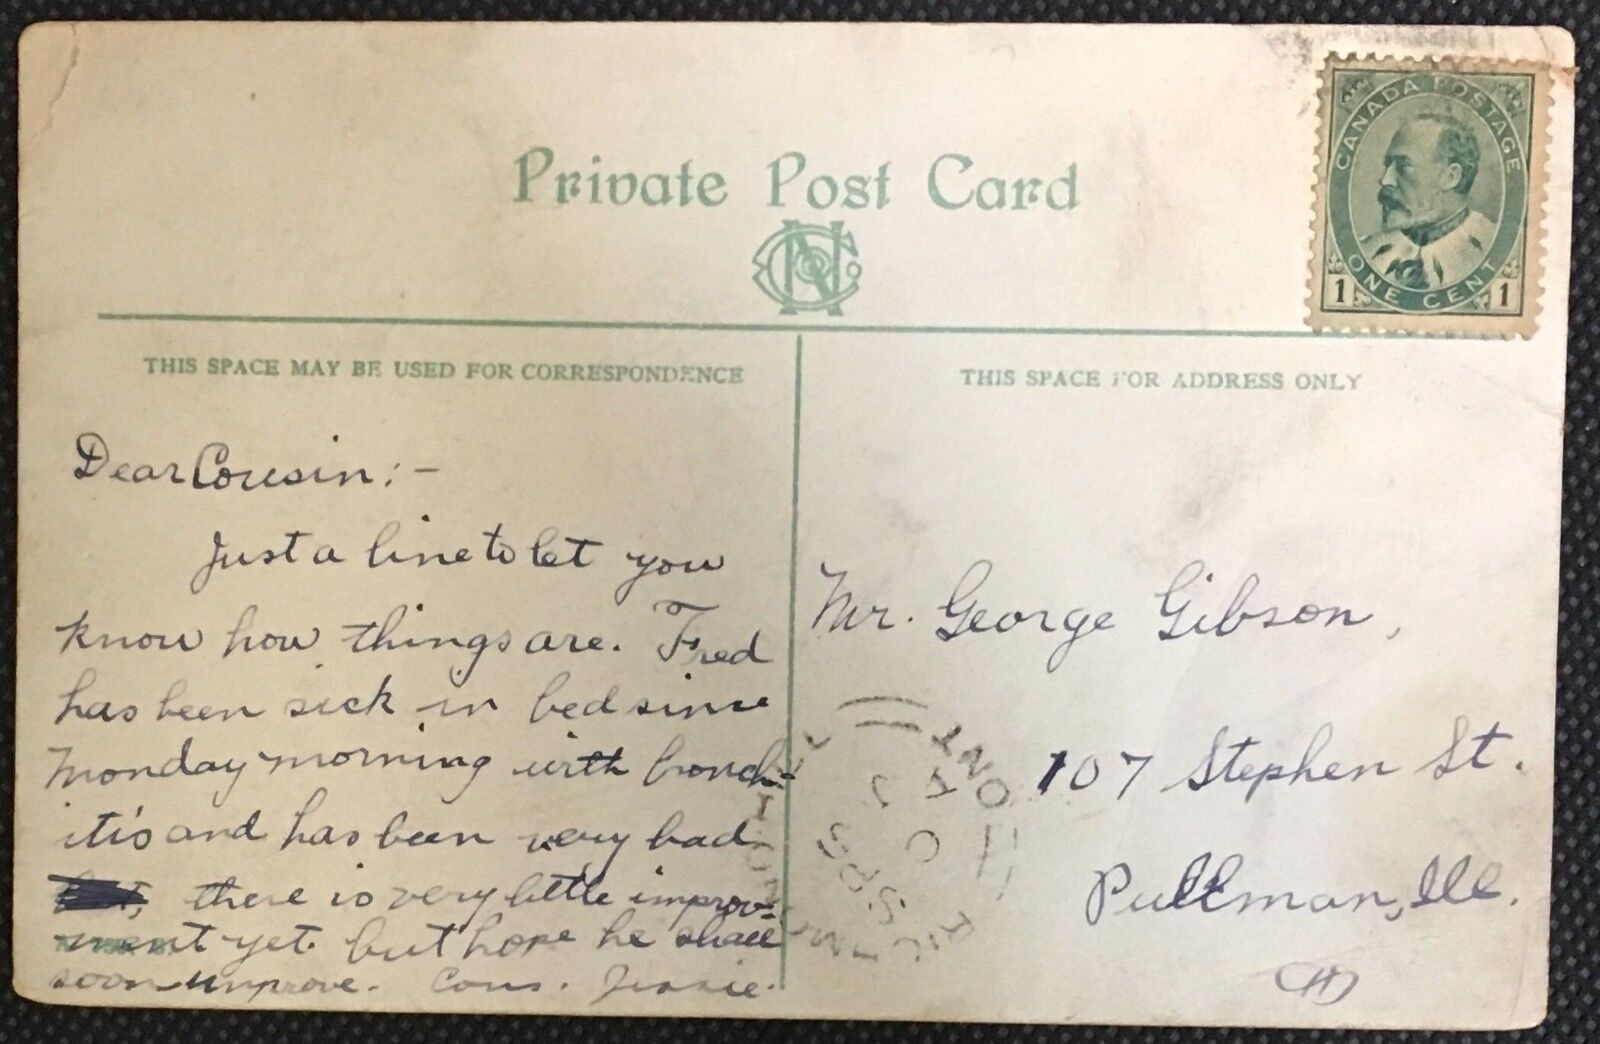 Private Post Card
CANADA POSTAGE
ONE CENT
1 1
THIS SPACE MAY BE USED FOR CORRESPONDENCE
THIS SPACE FOR ADDRESS ONLY
Dear Cousin:-
Just a line to let you
know how things are. Fred
has been sick in bed since
Monday morning with bronch-
itis and has been very bad
there is very little improv-
ment yet but hope he shall
soon improve. Cous. Jessie.
Mr. George Gibson,
107 Stephen St.
Pullman, Ill.
ONT
OC